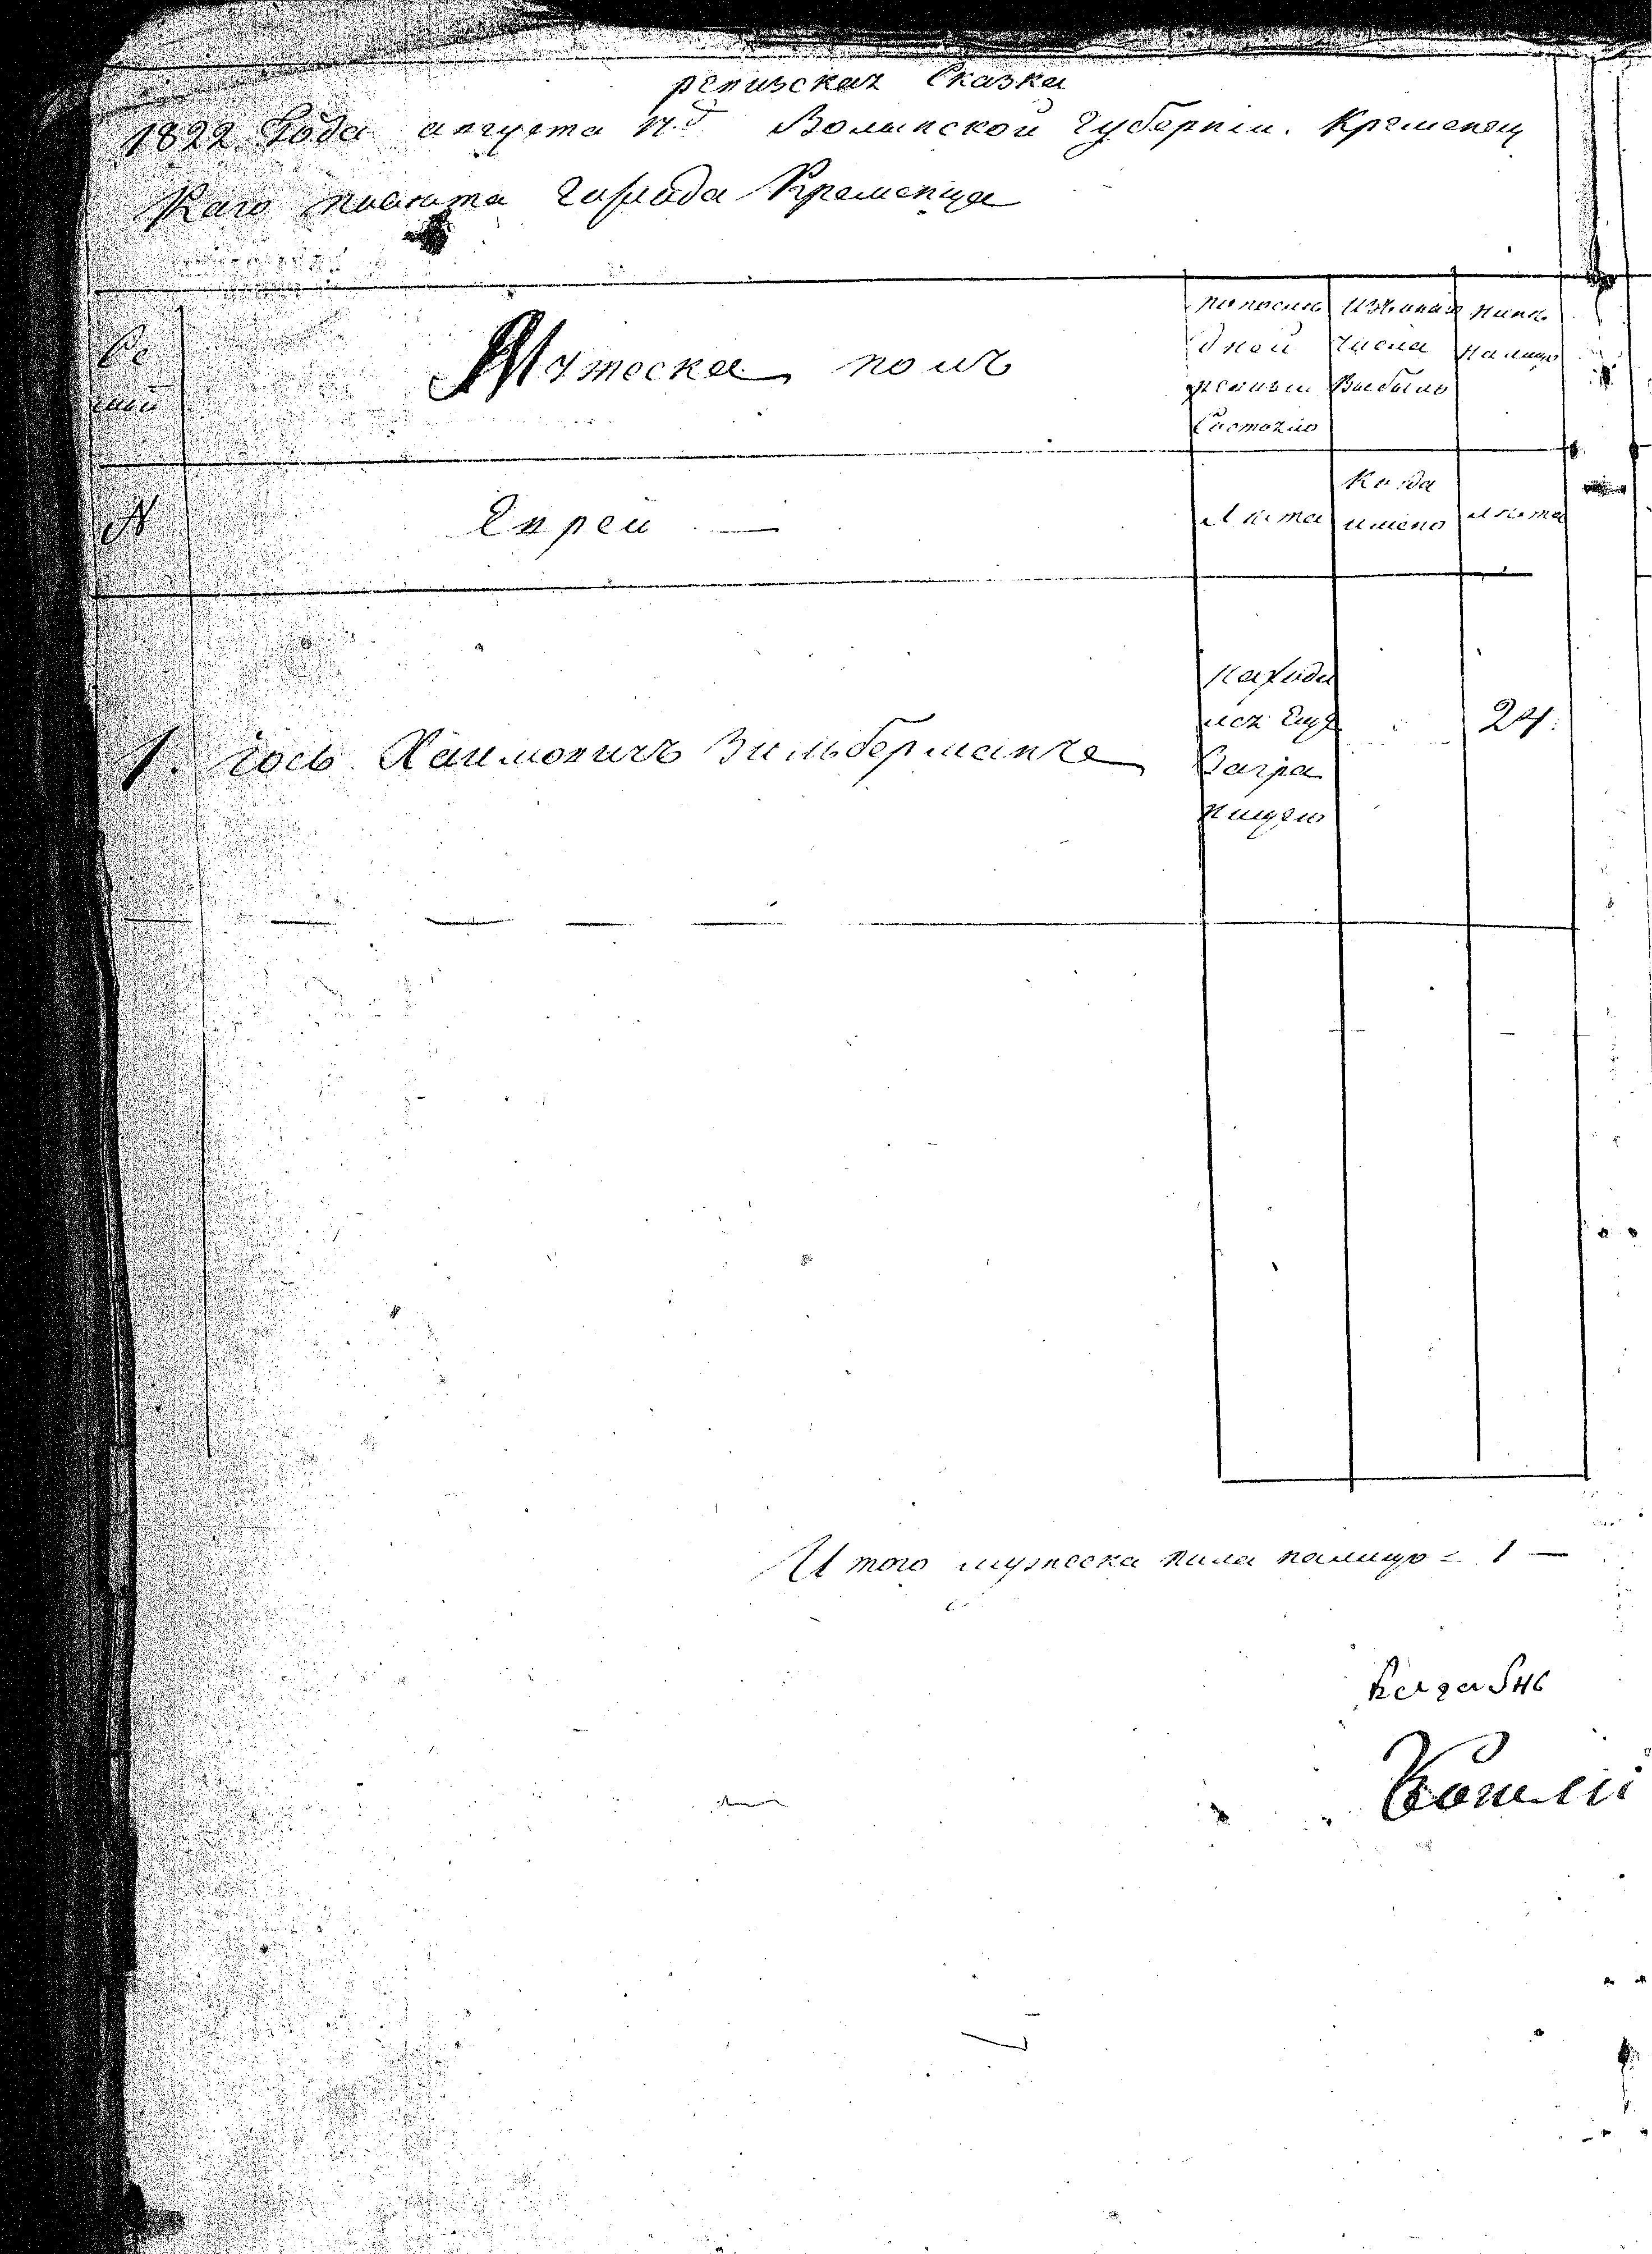 ревизская Сказка
1822 Года августа Волынской Губерніи. Кременец
Каго повѣта Города Кременца
Се
мьи
Мужеска полъ
по послѣ
дней
ревизіи
Состояло
Изъ онаго
Числа
Выбыло
нынѣ
на лицо
N
Евреи —
Лѣта
Когда
имено
лѣта
1. Іось Хаимовичъ Зильберманъ
находи
лся Еще
Загра
ницею
24.
Итого мужеска пола налицо = 1 —